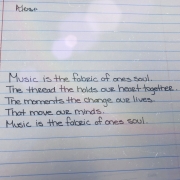 Music is the fabric of ones soul.
The thread the holds our heart together.
The moments the change our lives.
That move our minds.
Music is the fabric of ones soul.